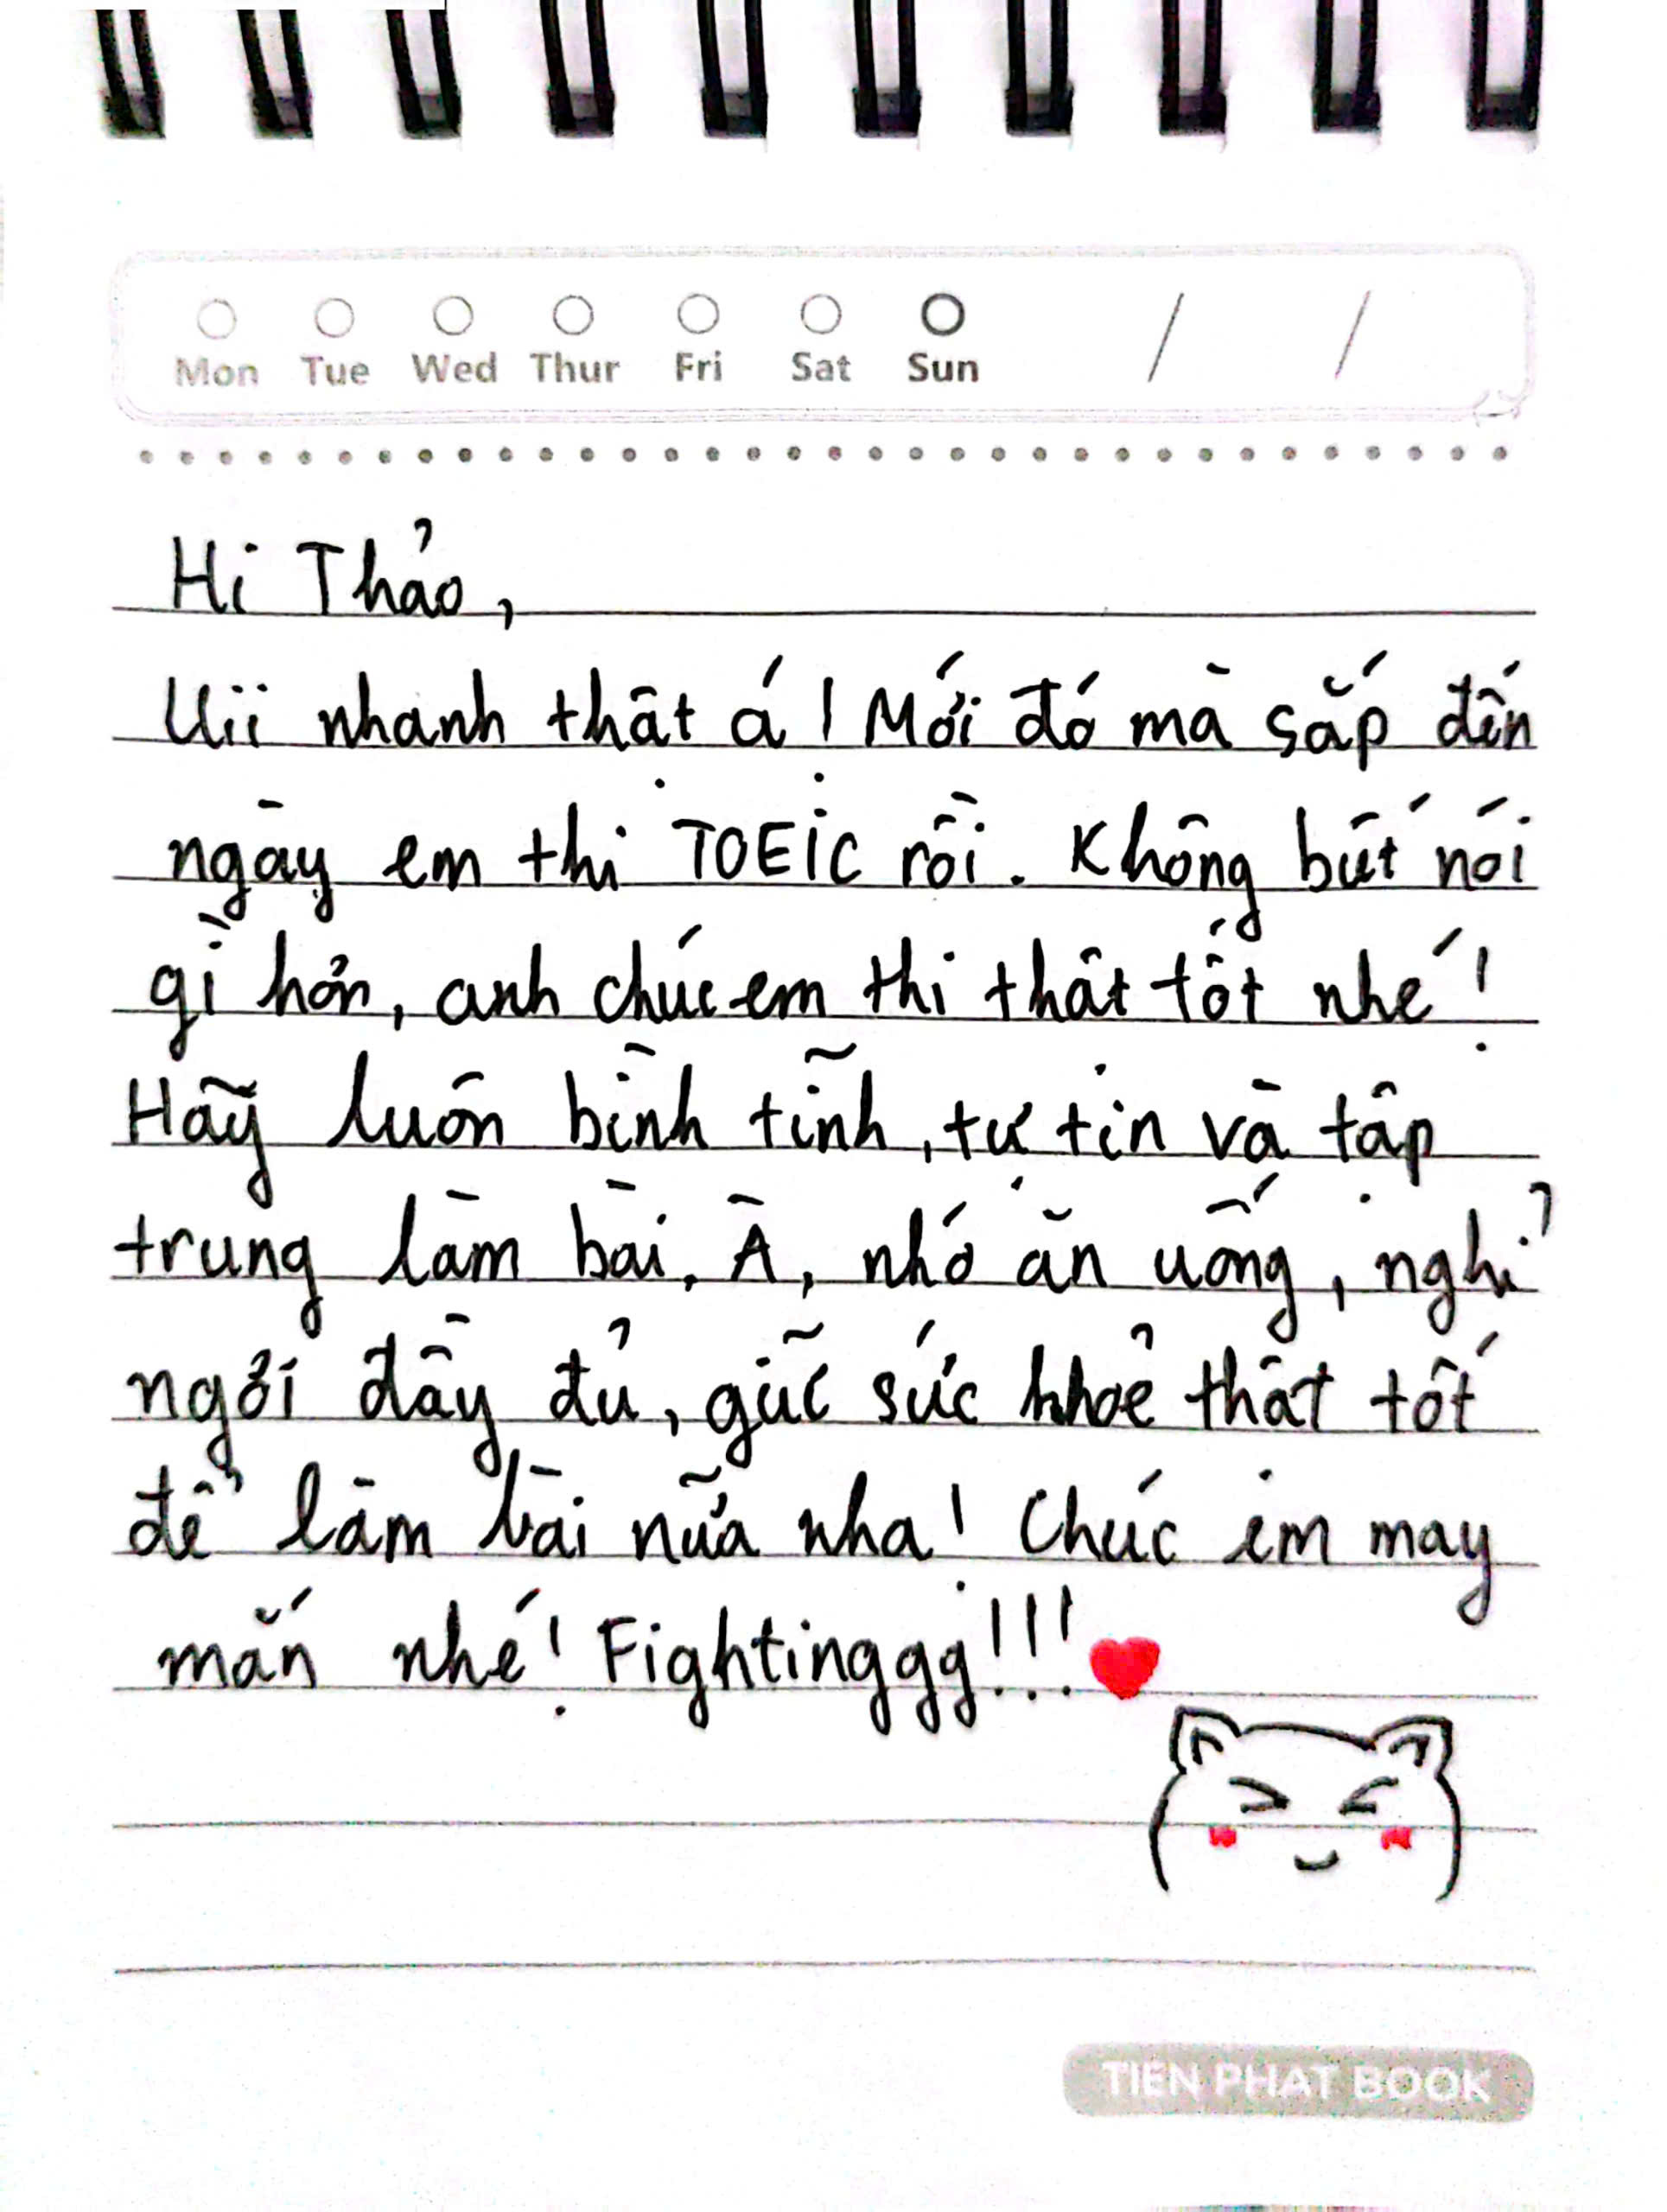 Mon Tue Wed Thur Fri Sat Sun / /
Hi Thảo,
Uii nhanh thật á! Mới đó mà sắp đến
ngày em thi TOEIC rồi. Không biết nói
gì hơn, anh chúc em thi thật tốt nhé!
Hãy luôn bình tĩnh, tự tin và tập
trung làm bài. À, nhớ ăn uống, nghỉ
ngơi đầy đủ, giữ sức khoẻ thật tốt
để làm bài nữa nha! Chúc em may
mắn nhé! Fightinggg!!!
TIEN PHAT BOOK